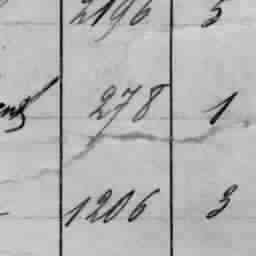 2196 5
278 1
1206 3